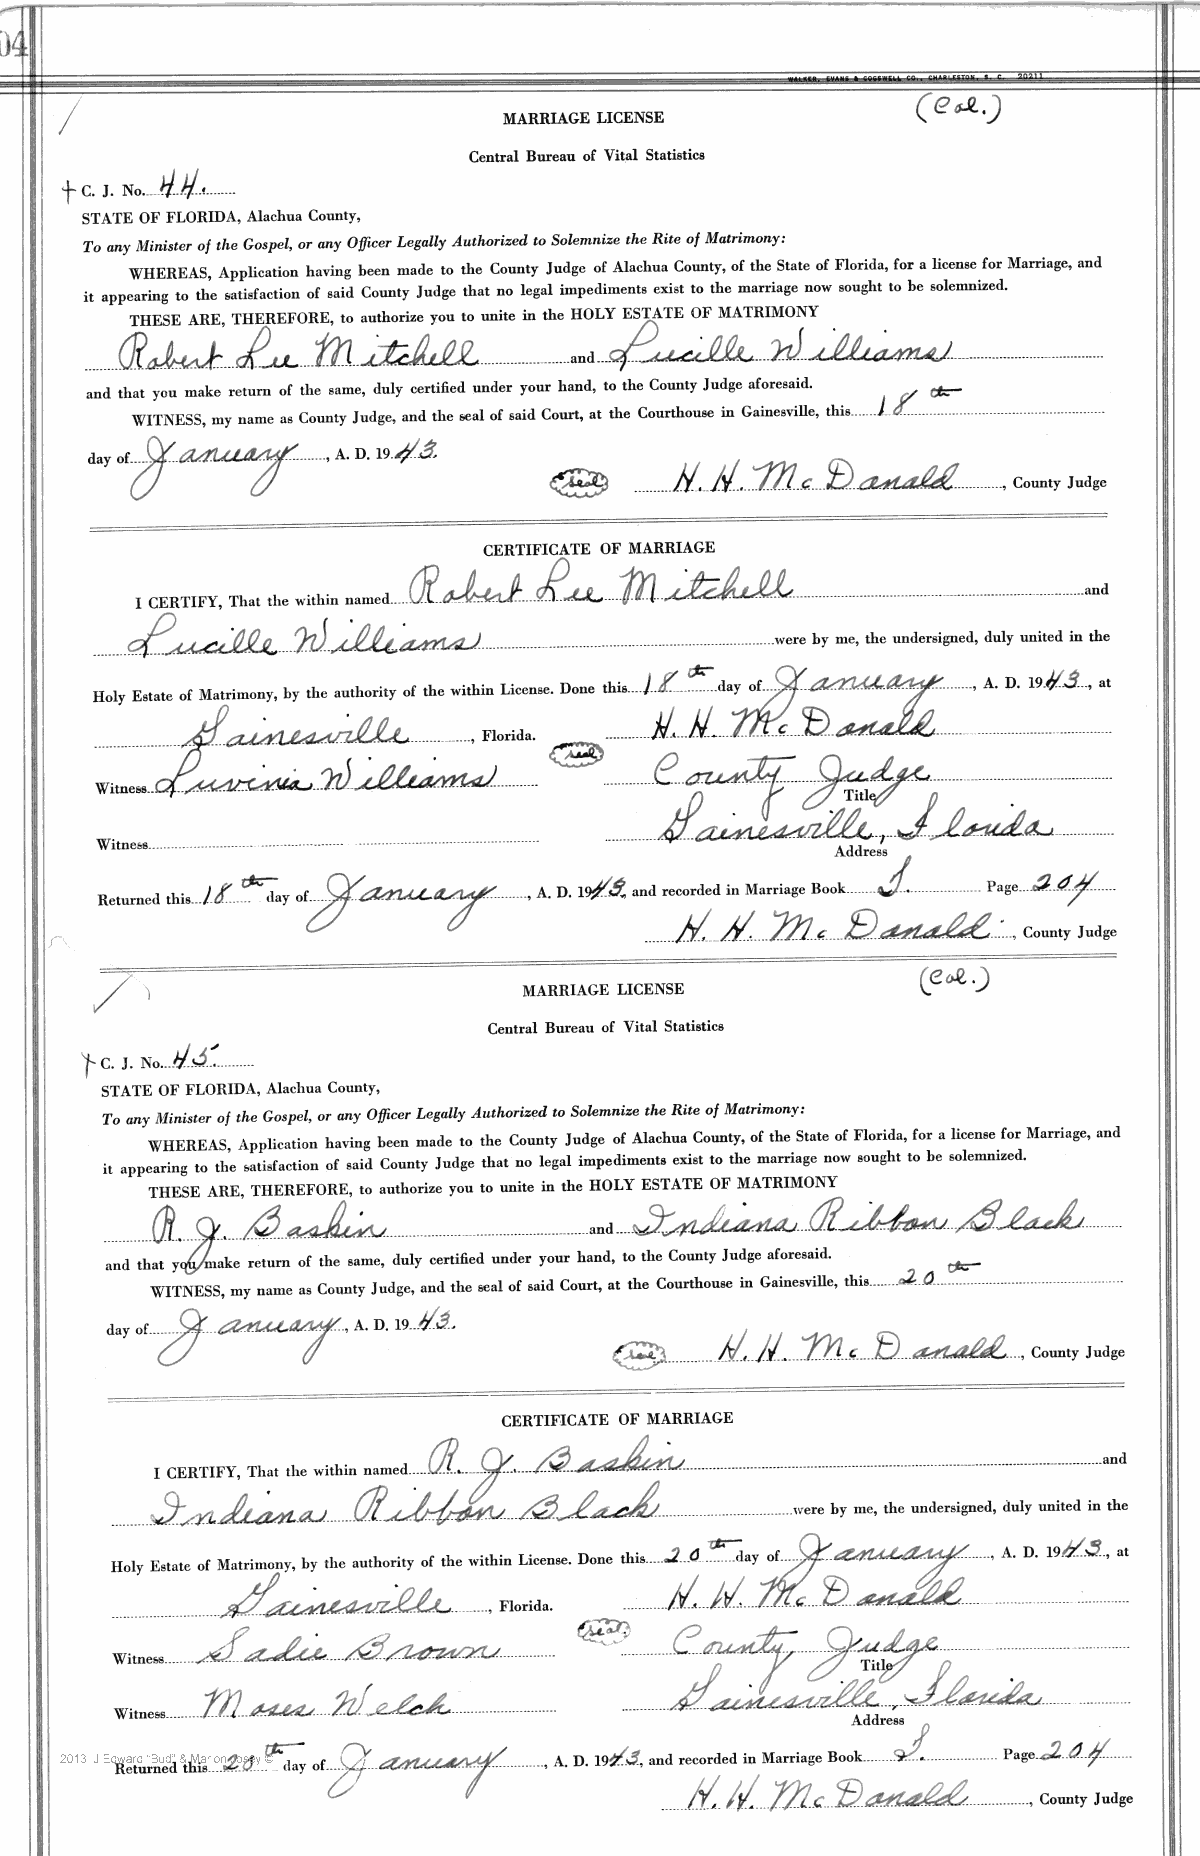 04
WALKER, EVANS & COGSWELL CO., CHARLESTON, S. C. 20211
(Col.)
MARRIAGE LICENSE
Central Bureau of Vital Statistics
C. J. No. 44.
STATE OF FLORIDA, Alachua County,
To any Minister of the Gospel, or any Officer Legally Authorized to Solemnize the Rite of Matrimony:
WHEREAS, Application having been made to the County Judge of Alachua County, of the State of Florida, for a license for Marriage, and
it appearing to the satisfaction of said County Judge that no legal impediments exist to the marriage now sought to be solemnized.
THESE ARE, THEREFORE, to authorize you to unite in the HOLY ESTATE OF MATRIMONY
Robert Lee Mitchell and Lucille Williams
and that you make return of the same, duly certified under your hand, to the County Judge aforesaid.
WITNESS, my name as County Judge, and the seal of said Court, at the Courthouse in Gainesville, this 18th
day of January, A. D. 1943.
seal H. H. McDonald, County Judge
CERTIFICATE OF MARRIAGE
I CERTIFY, That the within named Robert Lee Mitchell and
Lucille Williams were by me, the undersigned, duly united in the
Holy Estate of Matrimony, by the authority of the within License. Done this 18th day of January, A. D. 1943, at
Gainesville, Florida. seal H. H. McDonald
Witness Luvinia Williams County Judge
Title
Gainesville, Florida
Witness
Address
Returned this 18th day of January, A. D. 1943, and recorded in Marriage Book I. Page 204
H. H. McDonald, County Judge
(Col.)
MARRIAGE LICENSE
Central Bureau of Vital Statistics
C. J. No. 45.
STATE OF FLORIDA, Alachua County,
To any Minister of the Gospel, or any Officer Legally Authorized to Solemnize the Rite of Matrimony:
WHEREAS, Application having been made to the County Judge of Alachua County, of the State of Florida, for a license for Marriage, and
it appearing to the satisfaction of said County Judge that no legal impediments exist to the marriage now sought to be solemnized.
THESE ARE, THEREFORE, to authorize you to unite in the HOLY ESTATE OF MATRIMONY
R. J. Baskin and Indiana Ribbon Black
and that you make return of the same, duly certified under your hand, to the County Judge aforesaid.
WITNESS, my name as County Judge, and the seal of said Court, at the Courthouse in Gainesville, this 20th
day of January, A. D. 1943.
seal H. H. McDonald, County Judge
CERTIFICATE OF MARRIAGE
I CERTIFY, That the within named R. J. Baskin and
Indiana Ribbon Black were by me, the undersigned, duly united in the
Holy Estate of Matrimony, by the authority of the within License. Done this 20th day of January, A. D. 1943, at
Gainesville, Florida. seal H. H. McDonald
Witness Sadie Brown County Judge
Title
Witness Moses Welch Gainesville, Florida
Address
2013 J Edward "Bud" & Marion Josey ©
Returned this 20th day of January, A. D. 1943, and recorded in Marriage Book I. Page 204
H. H. McDonald, County Judge